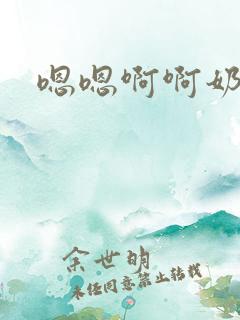 嗯嗯啊啊奶
余世明
未经同意禁止转载